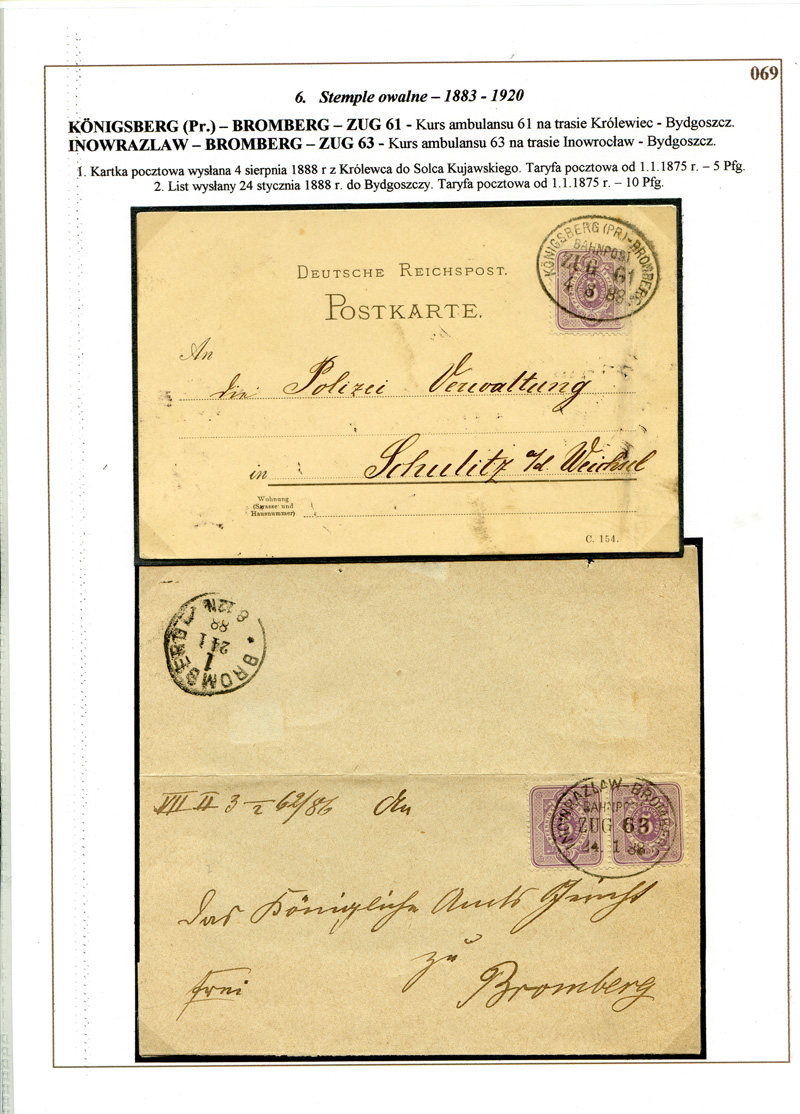 069
6. Stemple owalne – 1883 - 1920
KÖNIGSBERG (Pr.) – BROMBERG – ZUG 61 - Kurs ambulansu 61 na trasie Królewiec - Bydgoszcz.
INOWRAZLAW – BROMBERG – ZUG 63 - Kurs ambulansu 63 na trasie Inowrocław - Bydgoszcz.
1. Kartka pocztowa wysłana 4 sierpnia 1888 r z Królewca do Solca Kujawskiego. Taryfa pocztowa od 1.1.1875 r. – 5 Pfg.
2. List wysłany 24 stycznia 1888 r. do Bydgoszczy. Taryfa pocztowa od 1.1.1875 r. – 10 Pfg.
KÖNIGSBERG (PR)-BROMBERG
BAHNPOST
ZUG 61
4 8 88
DEUTSCHE REICHSPOST.
POSTKARTE.
An
die Polizei Verwaltung
in Schulitz a/d. Weichsel
Wohnung
(Strasse und
Hausnummer)
C. 154.
* BROMBERG
1
24 1
88
8-12N.
INOWRAZLAW-BROMBERG
BAHNPOST
ZUG 63
24. 1 88
VII II 3 62/86 An
das Königliche Amts Gericht
zu
frei Bromberg